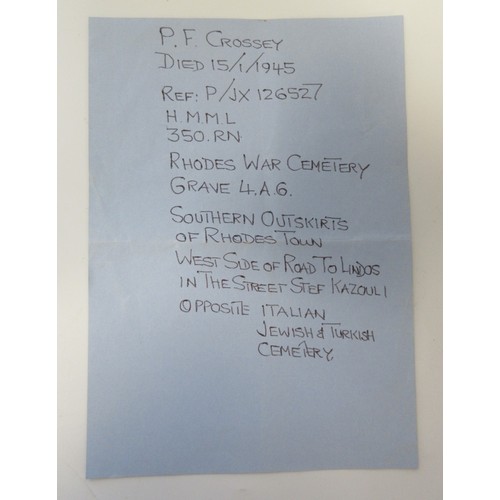 P. F. CROSSEY
DIED 15/1/1945
REF: P/JX 126527
H.M.M.L
350.RN
RHODES WAR CEMETERY
GRAVE 4.A.6.
SOUTHERN OUTSKIRTS
OF RHODES TOWN
WEST SIDE OF ROAD TO LINDOS
IN THE STREET STEF KAZOULI
OPPOSITE ITALIAN
JEWISH & TURKISH
CEMETERY